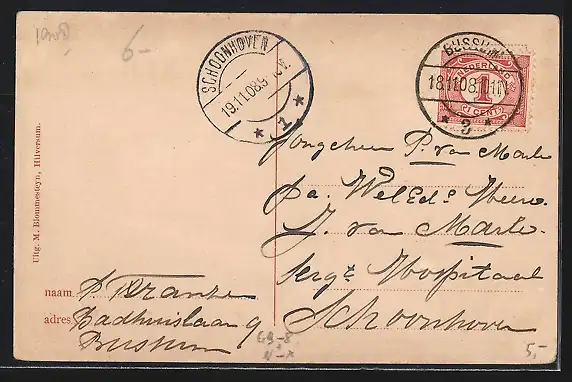 1908
6-
SCHOONHOVEN
19.11.08.9
1
BUSSUM
18.11.08
3
NEDERLAND
1
CENT
Uitg. M. Blommesteyn, Hilversum.
Jongeheer P. van Marle
pa. WelEd.
J. van Marle.
Serg.t Hospitaal
Schoonhoven
naam
adres Badhuislaan 9
Bussum
5,-